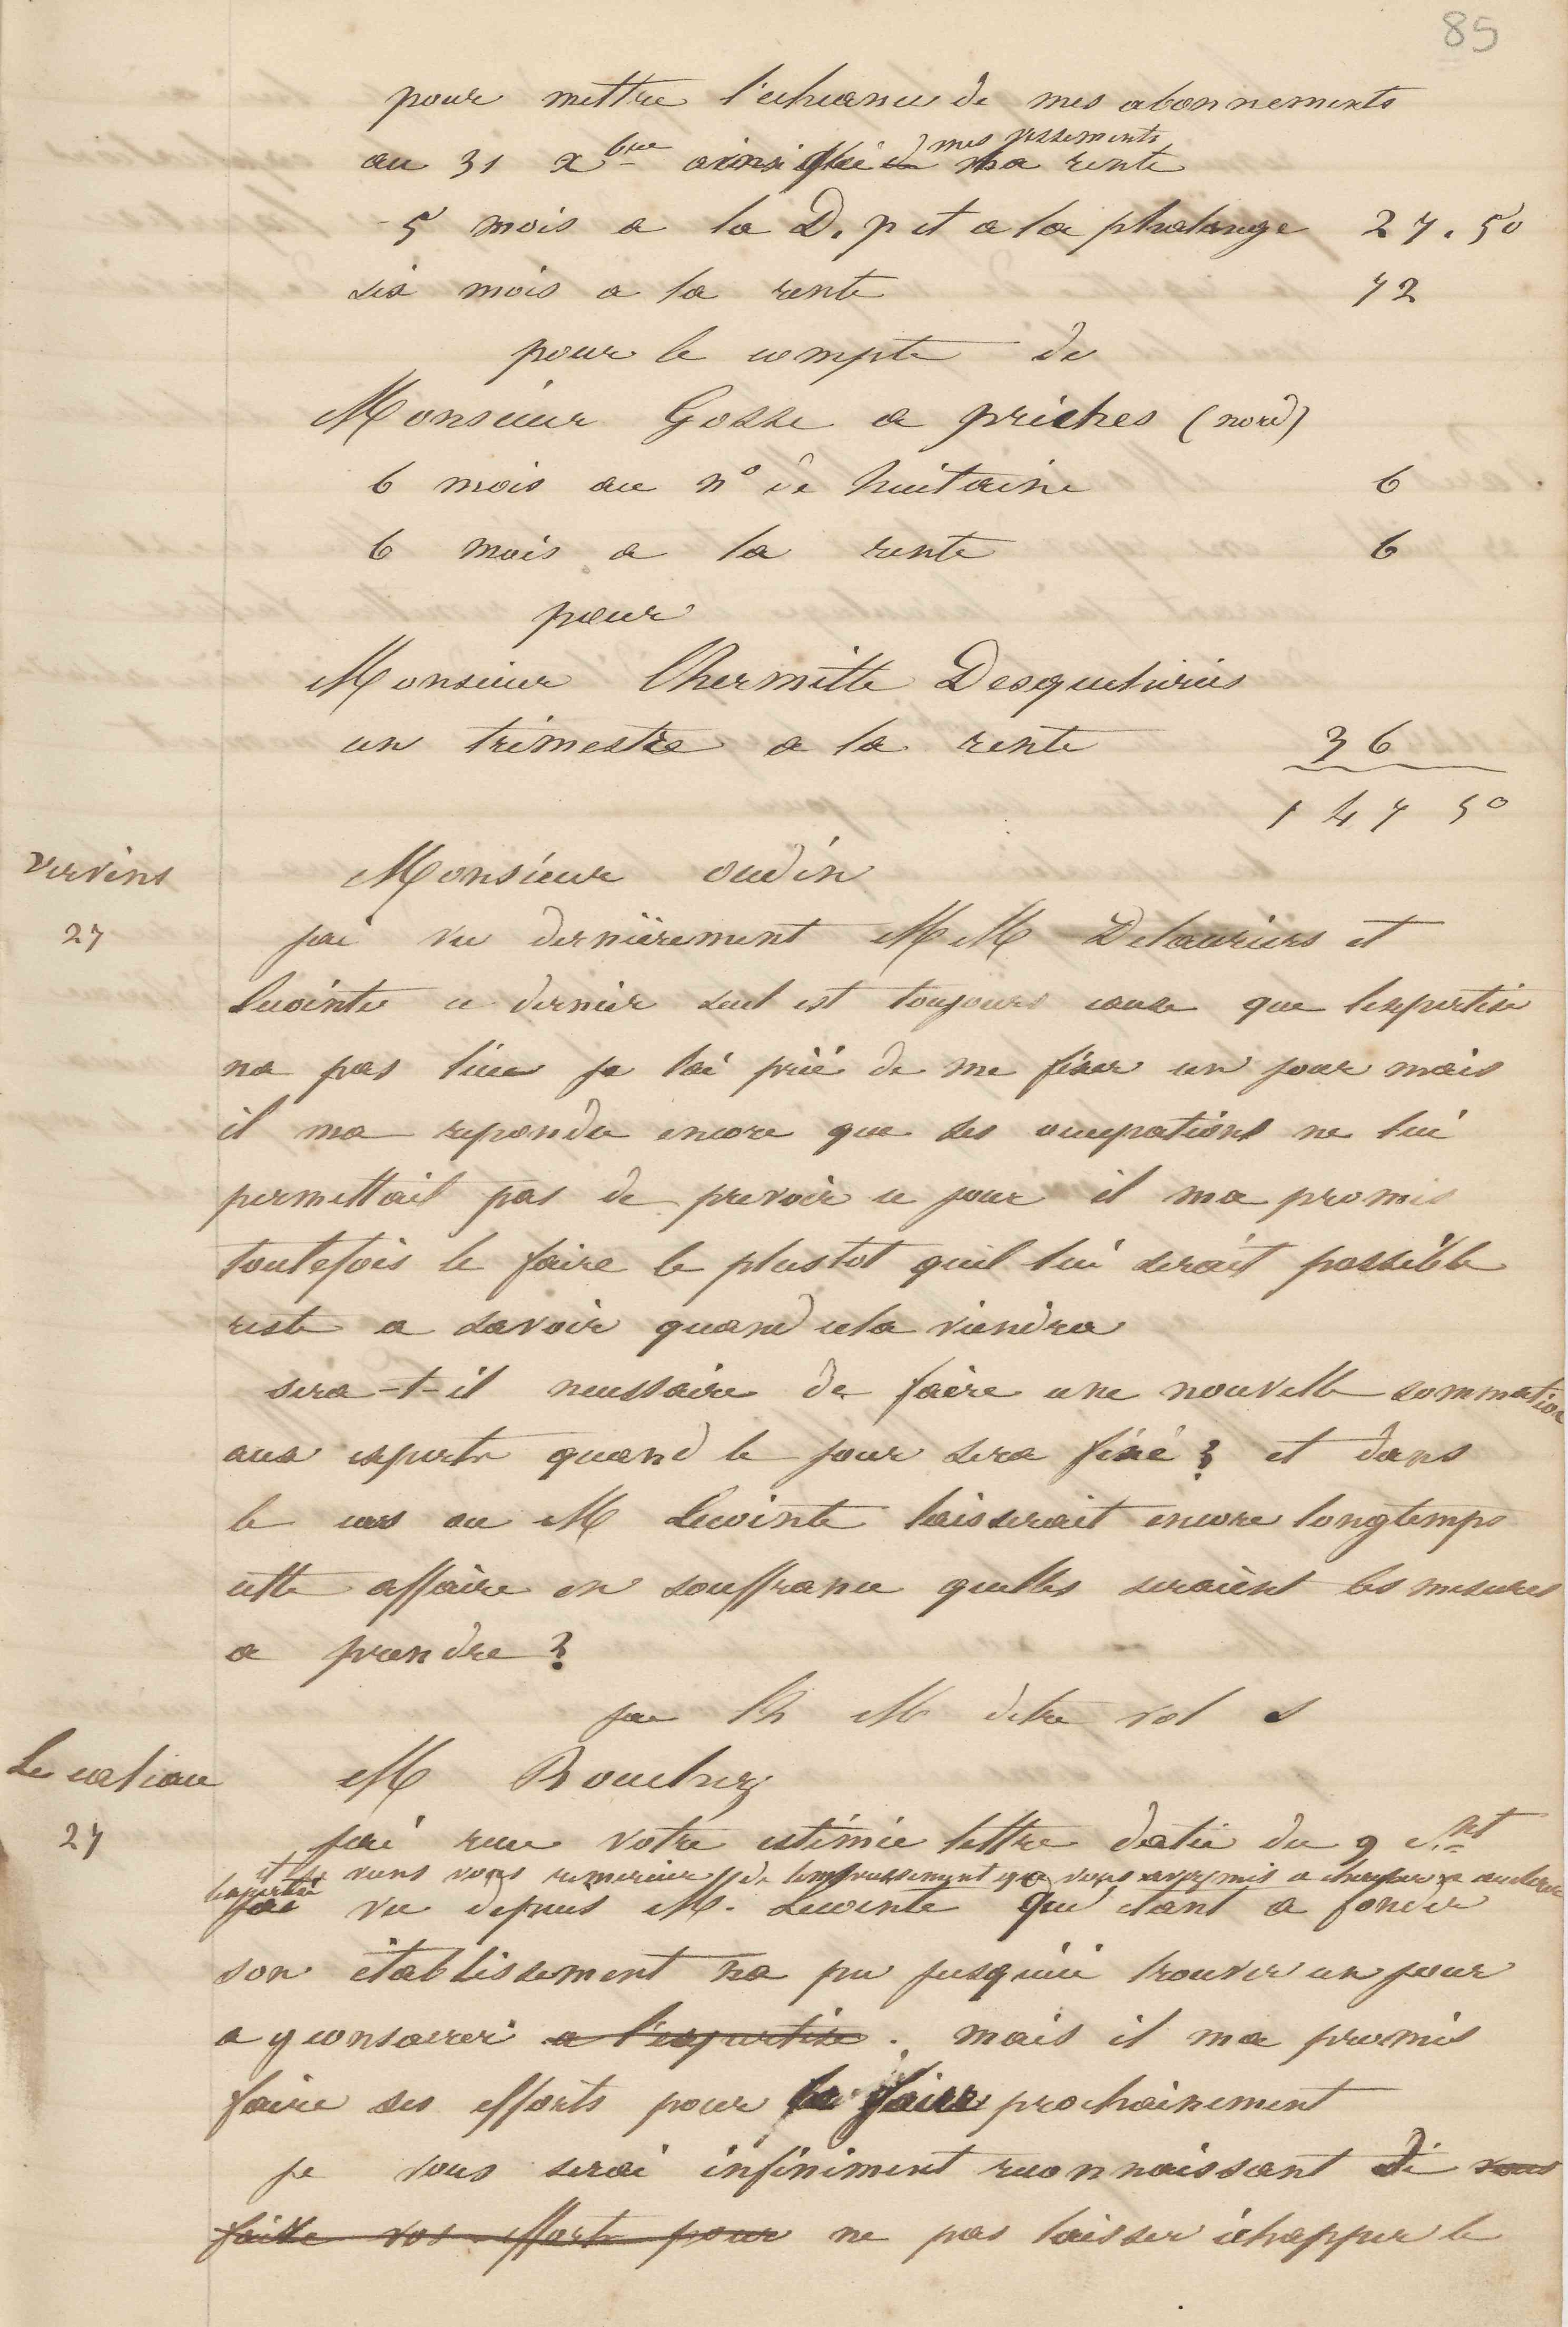 85
pour mettre l'echeance de mes abonnements
mes versements
au 31 xbre ainsi que ma rente
5 mois a la D. p et a la phalange 27.50
six mois a la rente 72
pour le compte de
Monsieur Gosse a prîches (nord)
6 mois au n° de huitaine 6
6 mois a la rente 6
pour
Monsieur Lhermitte Desqueheries
un trimestre a la rente 36
147 50
Vervins
27
Monsieur oudin
jai vu dernièrement MM Delauriers et
Lecointe ce dernier seul est toujours cause que lexpertise
na pas lieu je lai prié de me fixer un jour mais
il ma repondu encore que ses occupations ne lui
permettait pas de prevoir ce jour il ma promis
toutefois le faire le plustot quil lui serait possible
reste a savoir quand cela viendra
sera-t-il necessaire de faire une nouvelle sommation
aux experts quand le jour sera fixé ? et dans
le cas ou M Lecointe laisserait encore longtemps
cette affaire en souffrance quelles seraient les mesures
a prendre ?
jai lh M detre vot s
Le catiau
27
M Bouchez
jai recu votre estimée lettre datée du 9 ct
et je viens vous remercier de lempressement que vous avez mis a
lexpertise
jai vu depuis M. Lecointe qui etant a fonder
son établissement na pu jusquici trouver un jour
a y consacrer a l'expertise. mais il ma promis
faire ses efforts pour la faire prochainement
je vous serai infiniment reconnaissant de vous
faire vos efforts pour ne pas laisser échapper le